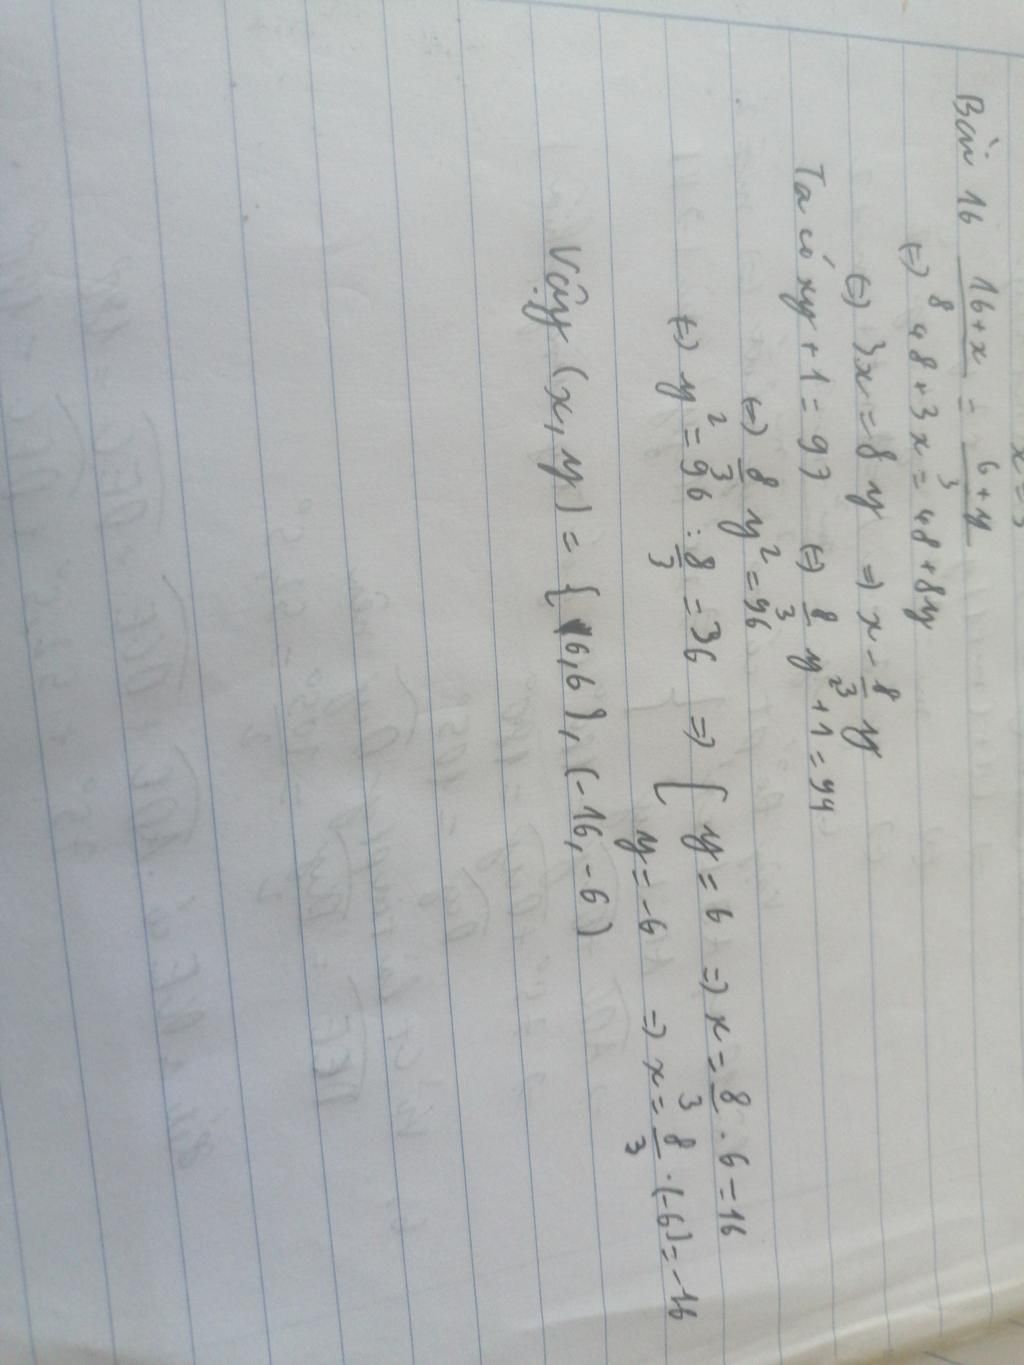 Bài 16 16+x/8 = 6+y/3
⇔ 48+3x = 48+8y
⇔ 3x = 8y ⇒ x = 8/3 y
Ta có xy+1 = 97 ⇔ 8/3 y² + 1 = 97
⇔ 8/3 y² = 96
⇔ y² = 96 : 8/3 = 36 ⇒ [ y = 6 ⇒ x = 8/3 . 6 = 16
y = -6 ⇒ x = 8/3 . (-6) = -16
Vậy (x, y) = { 16, 6 ), (-16, -6)